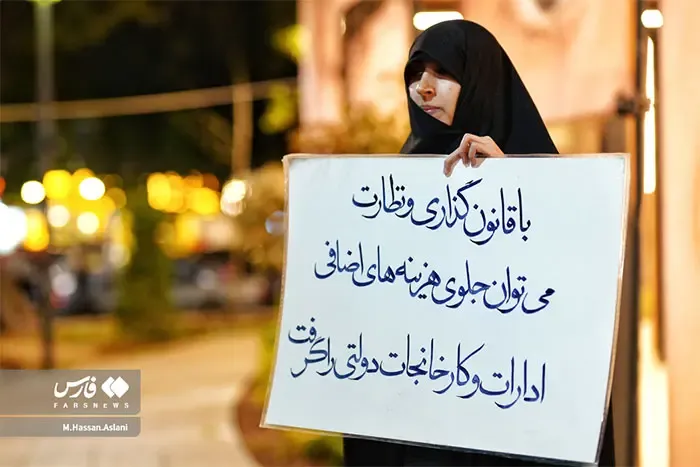 با قانون گذاری و نظارت
می توان جلوی هزینه های اضافی
ادارات و کارخانجات دولتی را گرفت
فارس
FARSNEWS
M.Hassan.Aslani